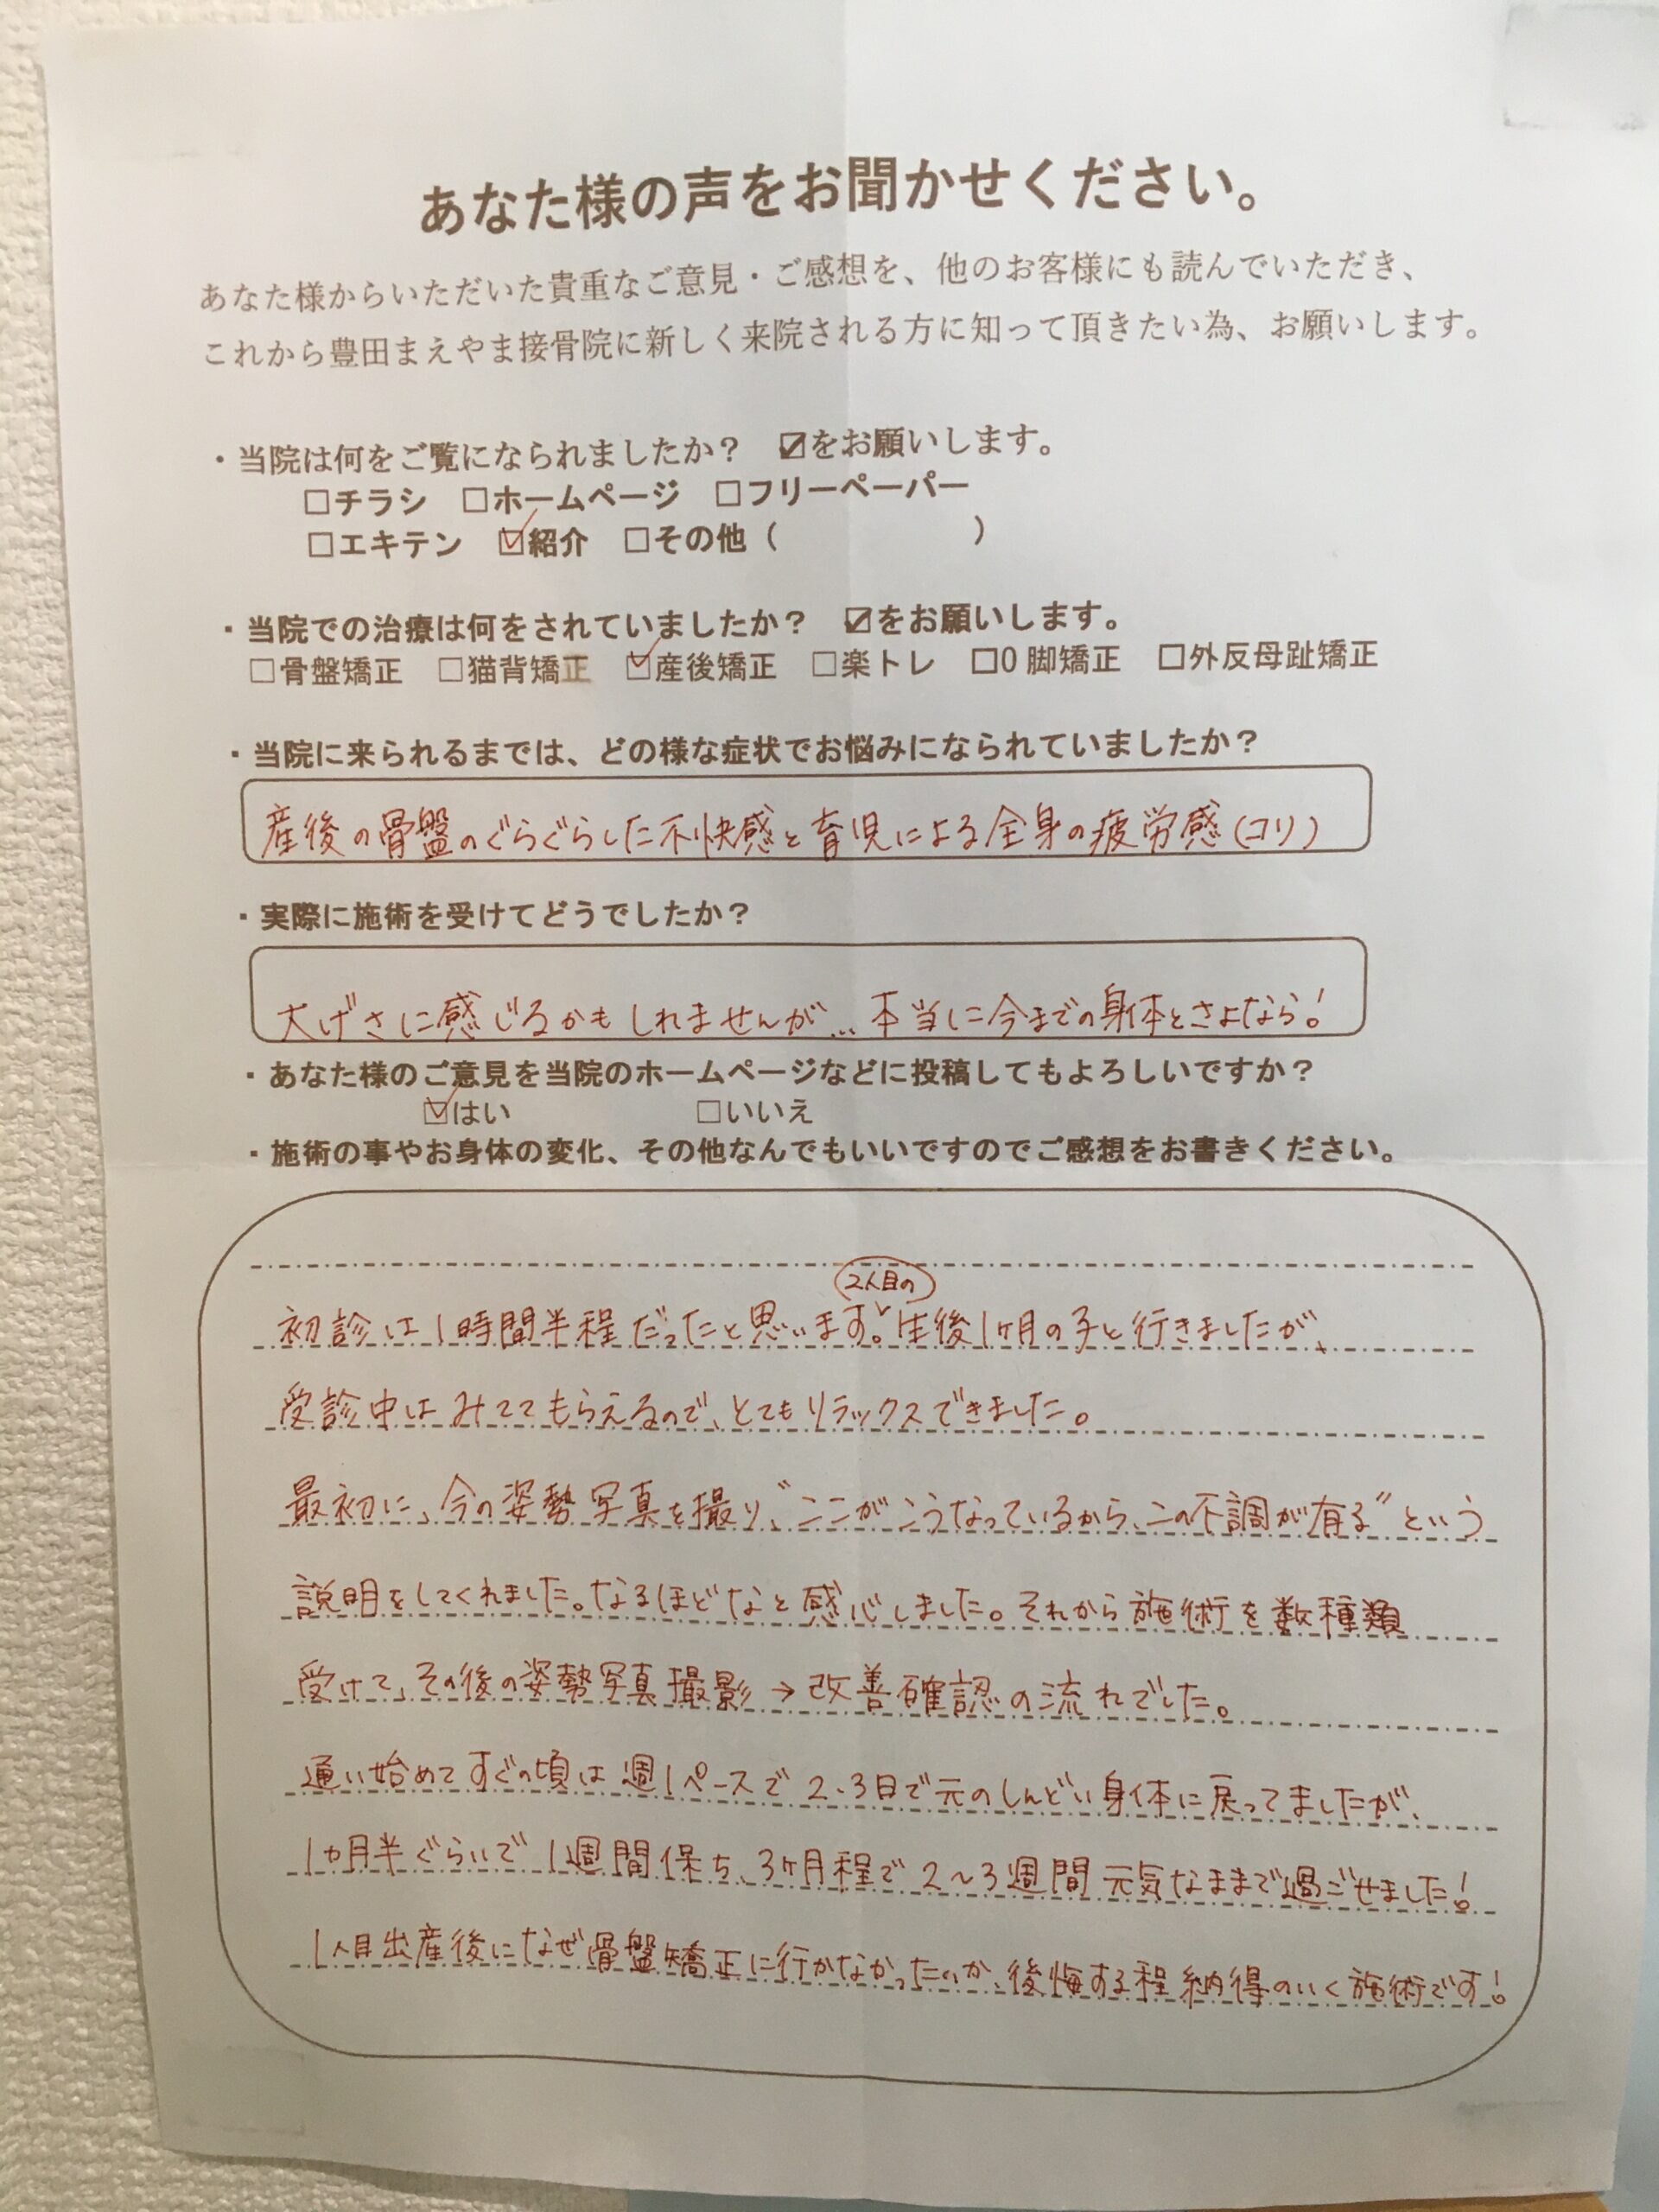 あなた様の声をお聞かせください。
あなた様からいただいた貴重なご意見・ご感想を、他のお客様にも読んでいただき、
これから豊田まえやま接骨院に新しく来院される方に知って頂きたい為、お願いします。
・当院は何をご覧になられましたか？ ☑をお願いします。
□チラシ □ホームページ □フリーペーパー
□エキテン ☑紹介 □その他（ ）
・当院での治療は何をされていましたか？ ☑をお願いします。
□骨盤矯正 □猫背矯正 ☑産後矯正 □楽トレ □O脚矯正 □外反母趾矯正
・当院に来られるまでは、どの様な症状でお悩みになられていましたか？
産後の骨盤のぐらぐらした不快感と育児による全身の疲労感（コリ）
・実際に施術を受けてどうでしたか？
大げさに感じるかもしれませんが…本当に今までの身体とさよなら！
・あなた様のご意見を当院のホームページなどに投稿してもよろしいですか？
☑はい □いいえ
・施術の事やお身体の変化、その他なんでもいいですのでご感想をお書きください。
2人目の
初診は1時間半程だったと思います。生後1ヶ月の子と行きましたが、
受診中はみててもらえるので、とてもリラックスできました。
最初に、今の姿勢写真を撮り、“ここがこうなっているから、この不調が有る”という
説明をしてくれました。なるほどなと感心しました。それから施術を数種類
受けて、その後の姿勢写真撮影→改善確認の流れでした。
通い始めてすぐの頃は週1ペースで2、3日で元のしんどい身体に戻ってましたが、
1ヵ月半ぐらいで1週間保ち、3ヶ月程で2〜3週間元気なままで過ごせました！
1人目出産後になぜ骨盤矯正に行かなかったのか、後悔する程納得のいく施術です！